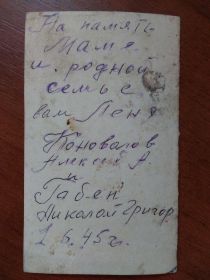 На память
Маме
и родной
семье
вам Лёня
Коновалов
Алексей А.
и
Габен
Николай Григор
1 6.45 г.